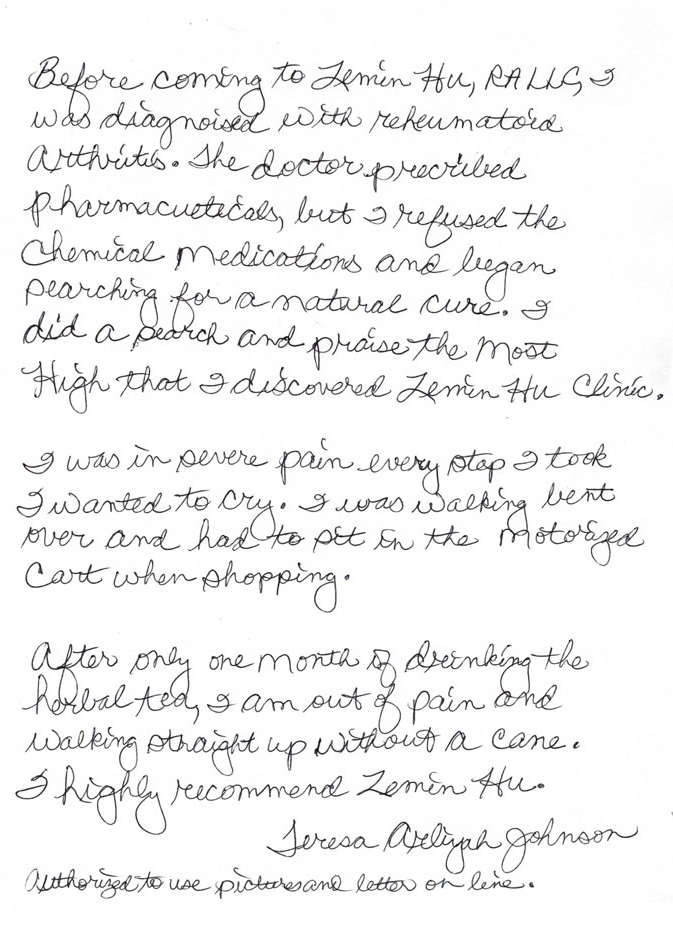 Before coming to Zemin Hu, RA LLC, I
was diagnoised with reheumatoid
Arthritis. The doctor precribed
pharmacueticals, but I refused the
Chemical Medications and began
searching for a natural cure. I
did a search and praise the Most
High that I discovered Zemin Hu Clinic.
I was in severe pain every step I took
I wanted to cry. I was walking bent
over and had to sit in the Motorized
Cart when shopping.
After only one month of drinking the
herbal tea, I am out of pain and
walking straight up without a cane.
I highly recommend Zemin Hu.
Teresa Johnson
Authorized to use pictures and letter on line.